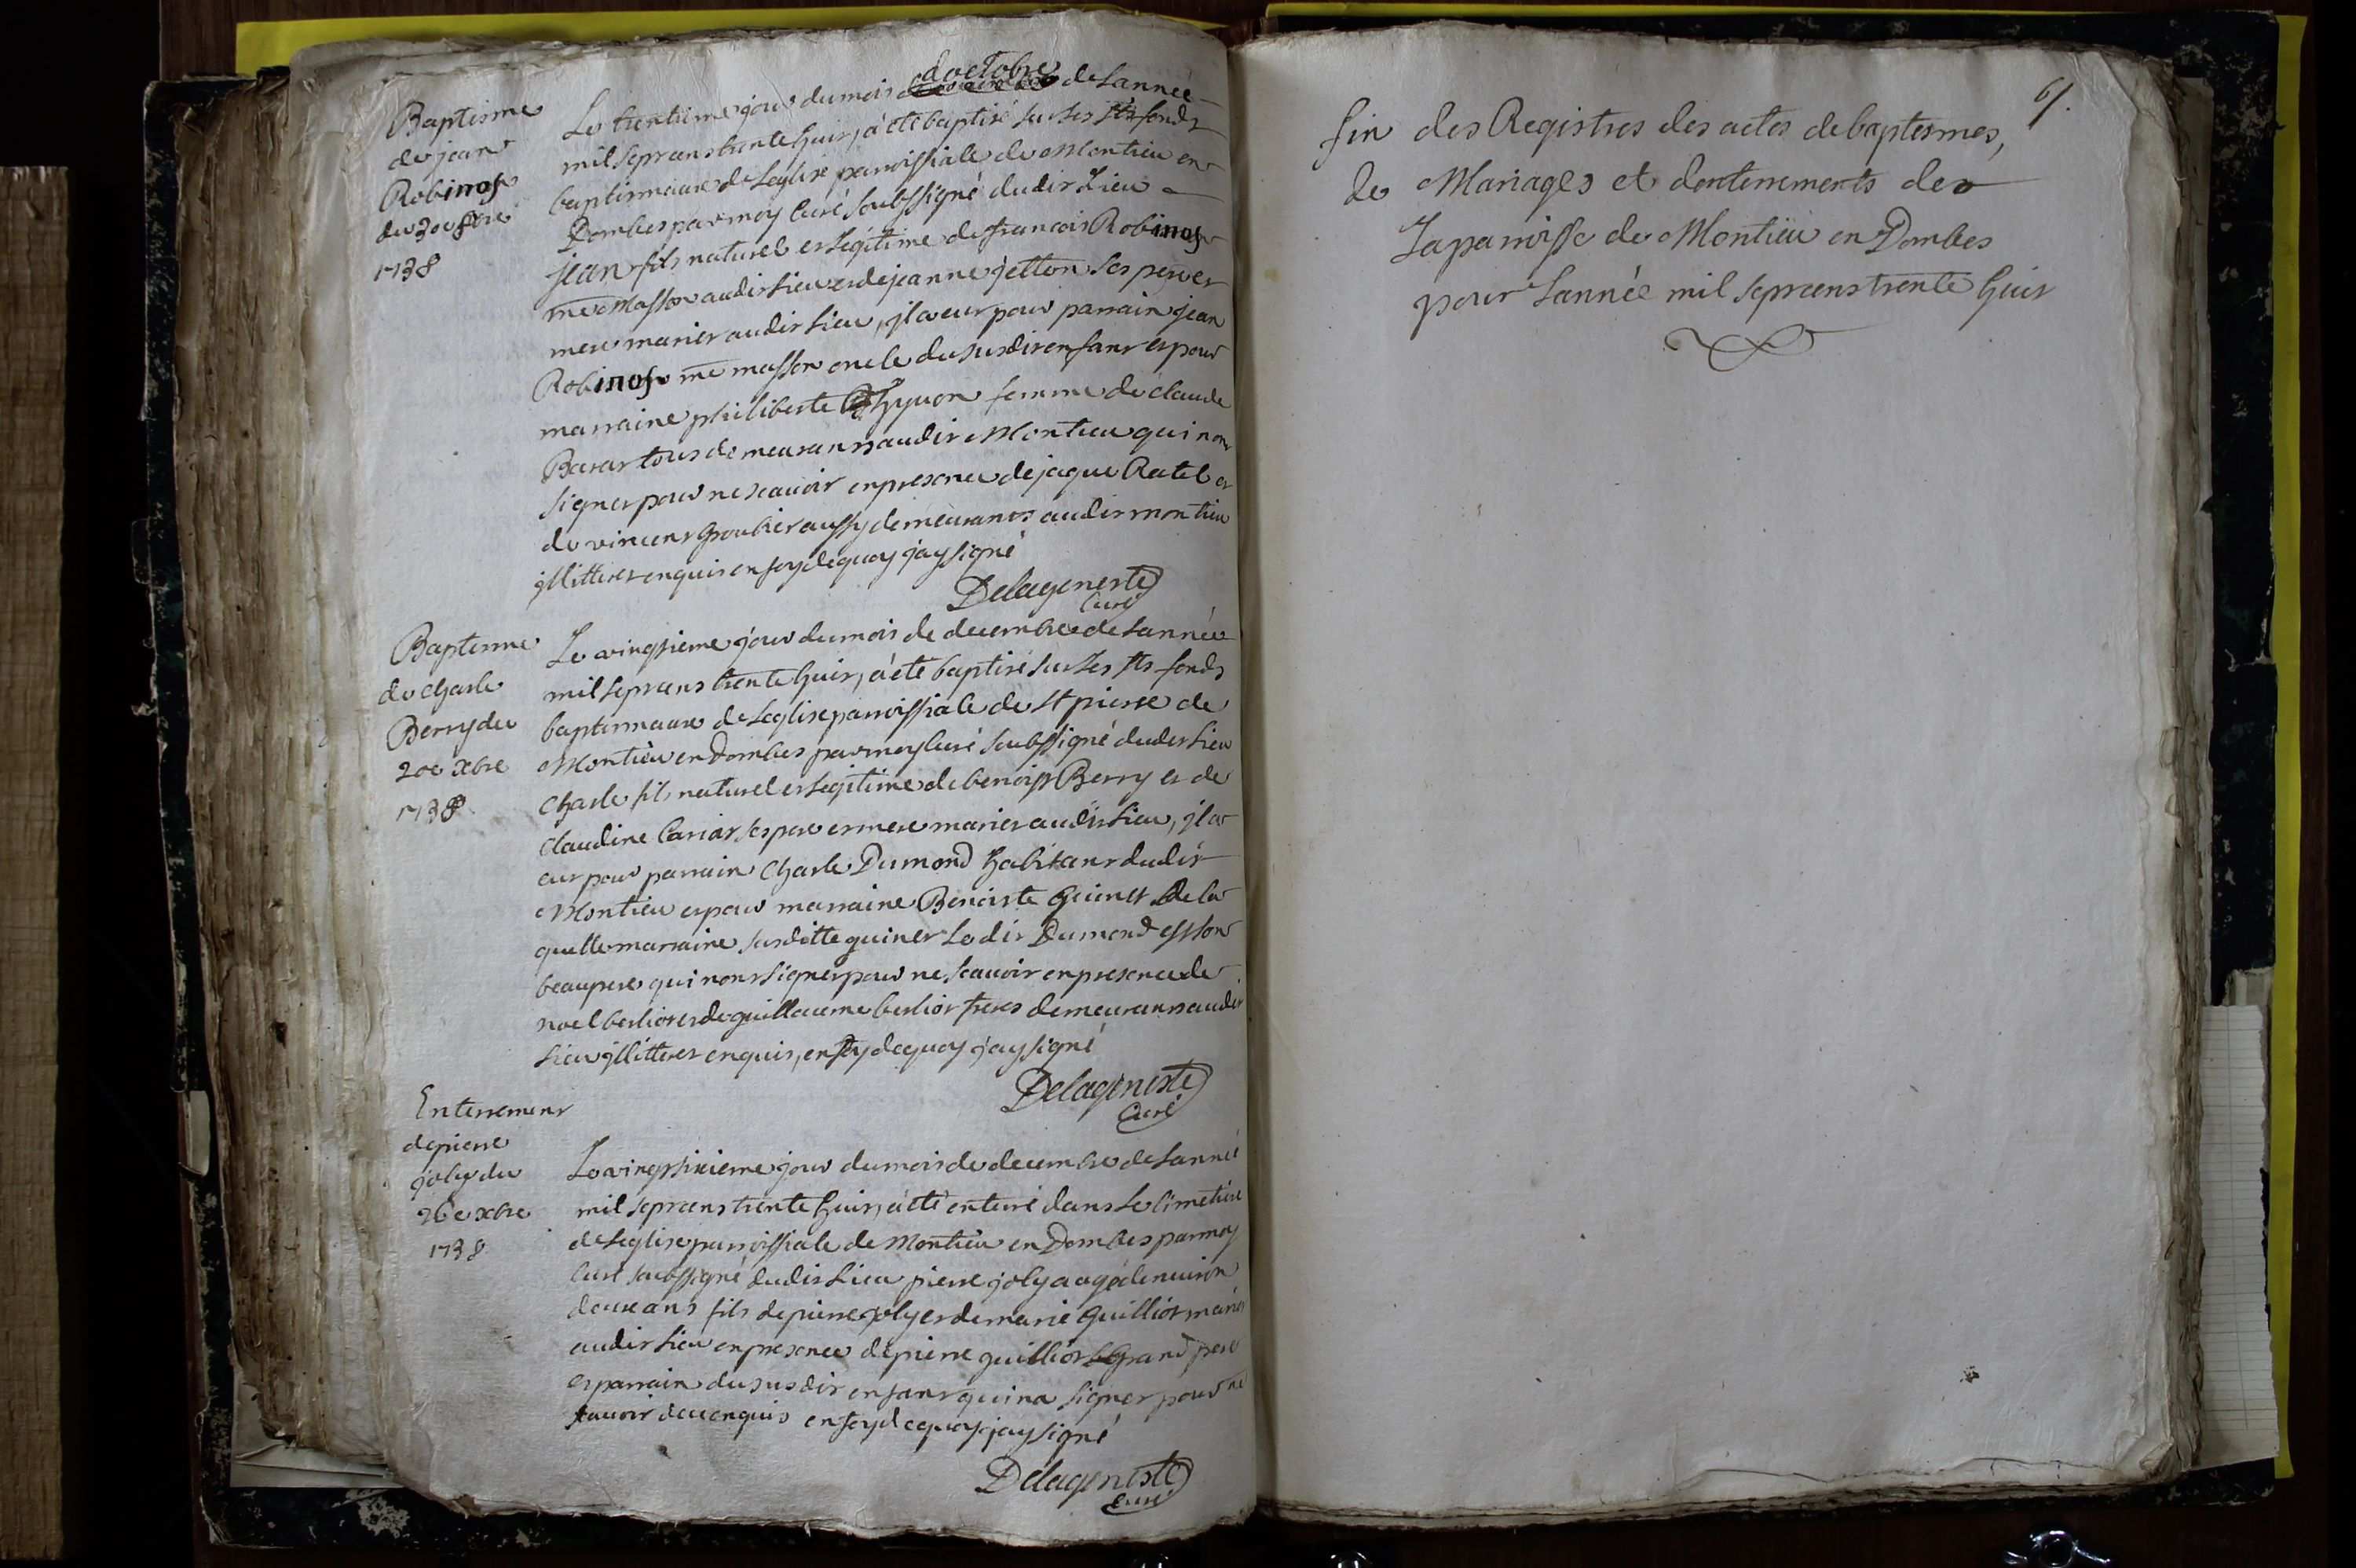 Baptisme
de jean
Robinos
du 30e 8bre
1738
Le trentieme jour du mois doctobre de Lannée
mil sepcens trente huis, a été baptisé sur Les sts fonds
baptismaux de Leglise parroissiale de Montieu en
Dombes par moy Curé soubssigné dudis Lieu
jean fils naturel es Légitime de francois Robinos
me Masson audis Lieu es de jeanne jetton Ses pere es
mere mariés audis Lieu, jl a eu pour parrain jean
Robinos me masson oncle du susdis enfans es pour
marraine philiberte femme de claude
Baras tous demeurans audis Montieu qui non
signer pour ne scauoir en presence de jaque Ratel es
de vincens Groubier aussy demeurans audis montieu
jllitteres enquis en foy de quoy jay signé
Delageneste
Curé
Baptisme
de charle
Berry du
20e xbre
1738
Le vingtieme jour du mois de decembre de Lannée
mil sepcens trente huis, a été baptisé sur Les sts fonds
baptismaux de Leglise parroissiale de st pierre de
Montieu en Dombes par moy Curé soubssigné dudis Lieu
Charle fils naturel es Legitime de benoist Berry es de
Claudine Carias ses pere es mere mariés audis Lieu, jl a
eu pour parrain Charle Dumond habitans dudis
Montieu es pour marraine Benoiste Guines De la
quelle marraine susditte guines Le dis Dumond est son
beaupere qui nons signer pour ne scauoir en presence de
noel berlios es de guillaume berlios freres demeurans audis
Lieu jllitteres enquis, en foy de quoy jay signé
Delageneste
Curé
Enterremens
de pierre
joly du
26e xbre
1738
Le vingt sixieme jour du mois de decembre de Lannée
mil sepcens trente huis, a été enterré dans Le cimetiere
de Leglise parroissiale de Montieu en Dombes par moy
Curé soubssigné dudis Lieu pierre joly aagé denuiron
deux ans fils de pierre joly es de marie Guillios mariés
audis Lieu en presence de pierre guillios Grand pere
es parrain du susdis enfans qui na signer pour ne
scauoir de ce enquis en foy de quoy jay signé
Delageneste
Curé
61.
fin des Registres des actes de baptesmes,
de Mariages et denterrements de
La parroisse de Montieu en Dombes
pour Lannée mil sepcens trente huis